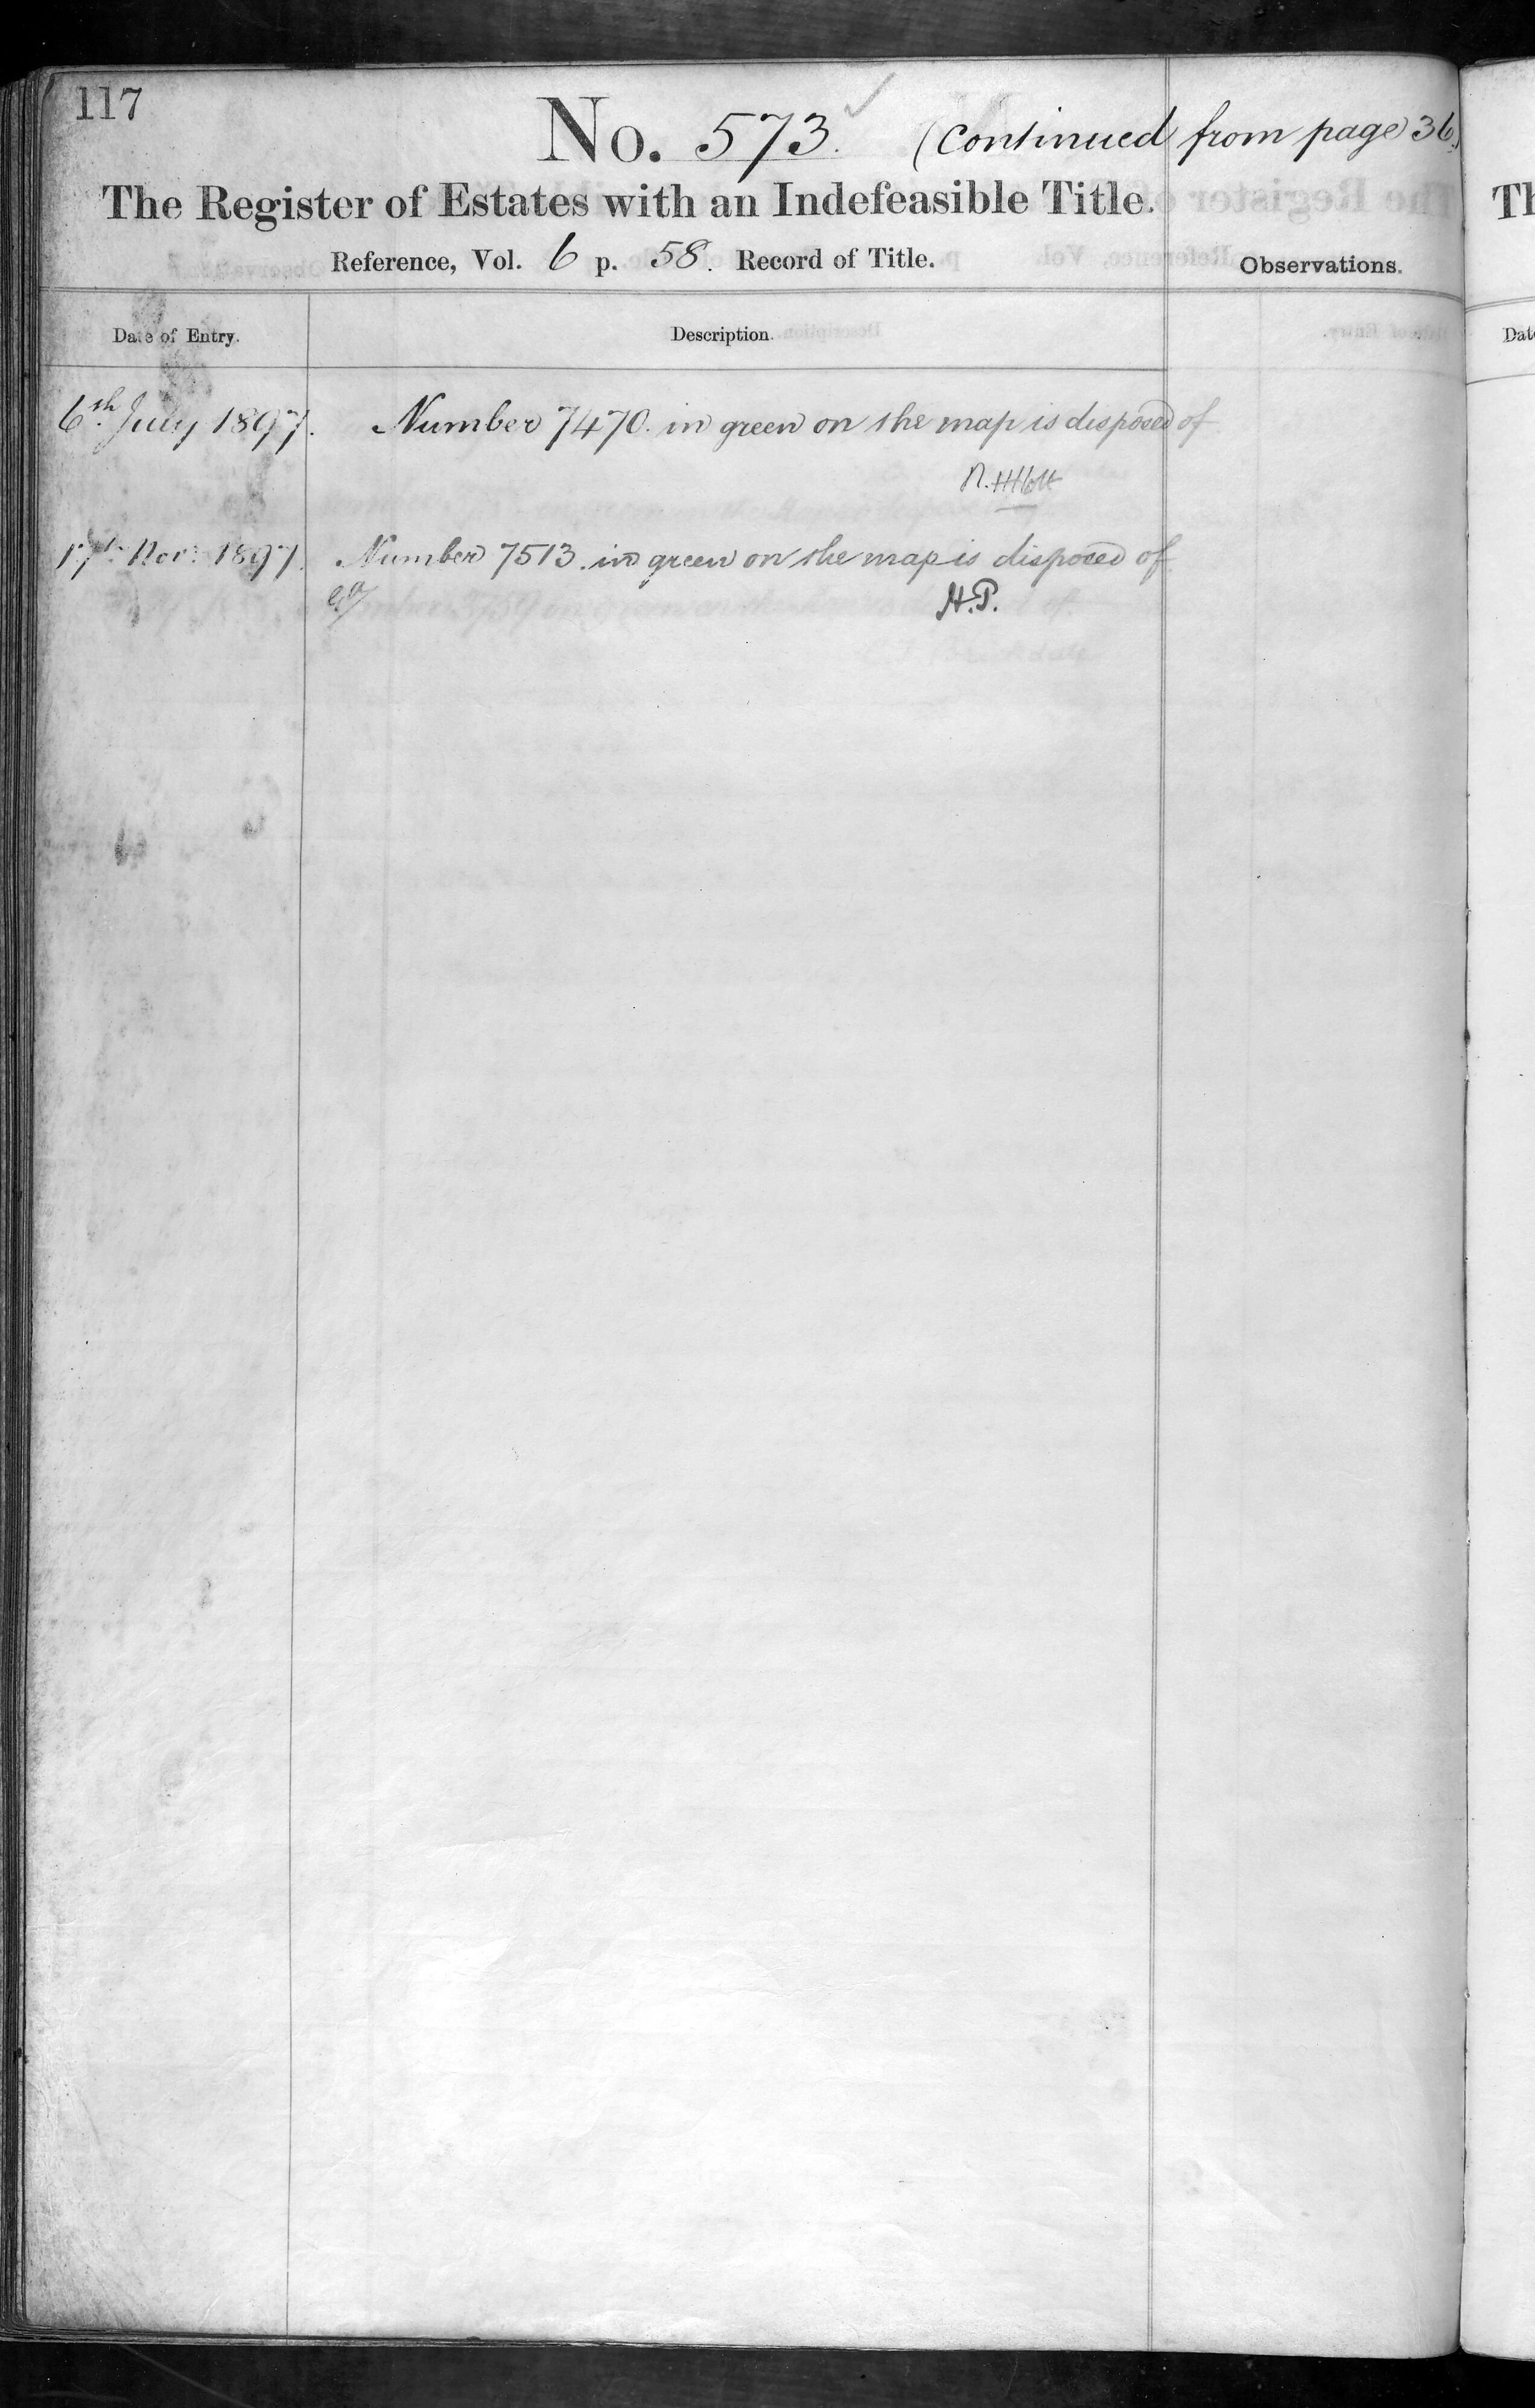 117
No. 573. (Continued from page 36.)
The Register of Estates with an Indefeasible Title.
Reference, Vol. 6 p. 58. Record of Title.
Observations.
Date of Entry.
Description.
6th July 1897. Number 7470. in green on the map is disposed of
17th Nov: 1897. Number 7513. in green on the map is disposed of
H.P.
Th
Dat